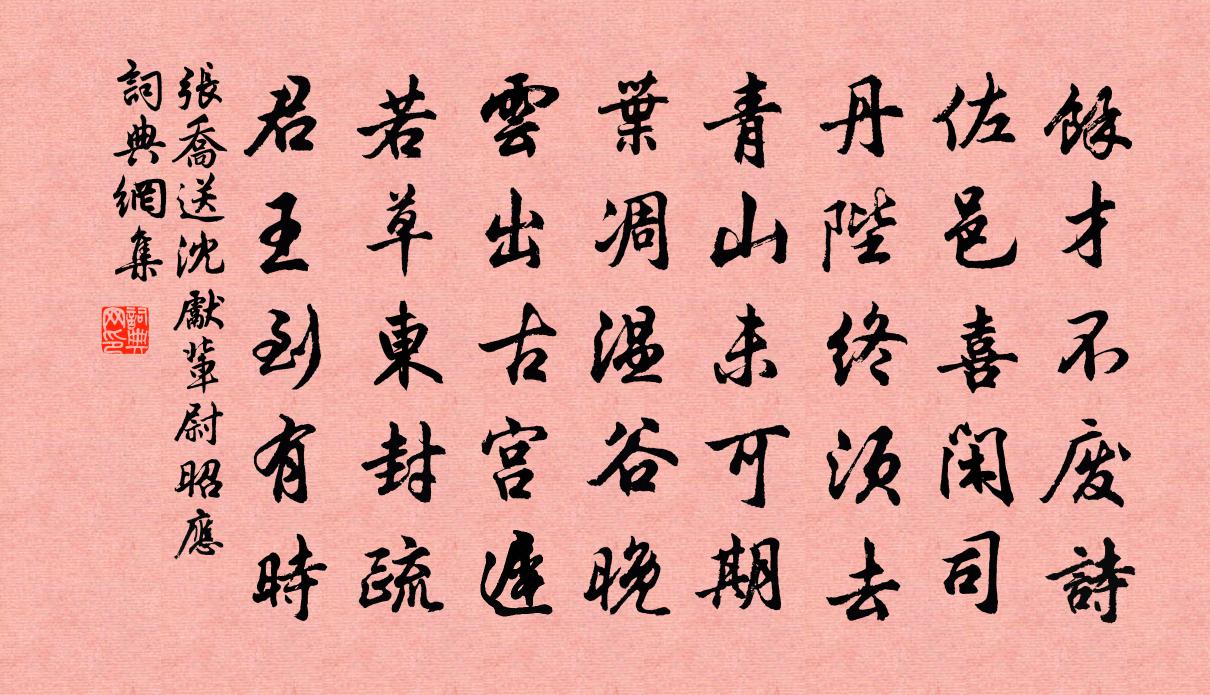 餘才不废詩
佐邑喜閑司
丹陛終須去
青山未可期
葉凋温谷晚
雲出古宫遲
若草東封疏
君王到有時
張喬送沈獻輩尉昭應
詞典網集
詞典网印